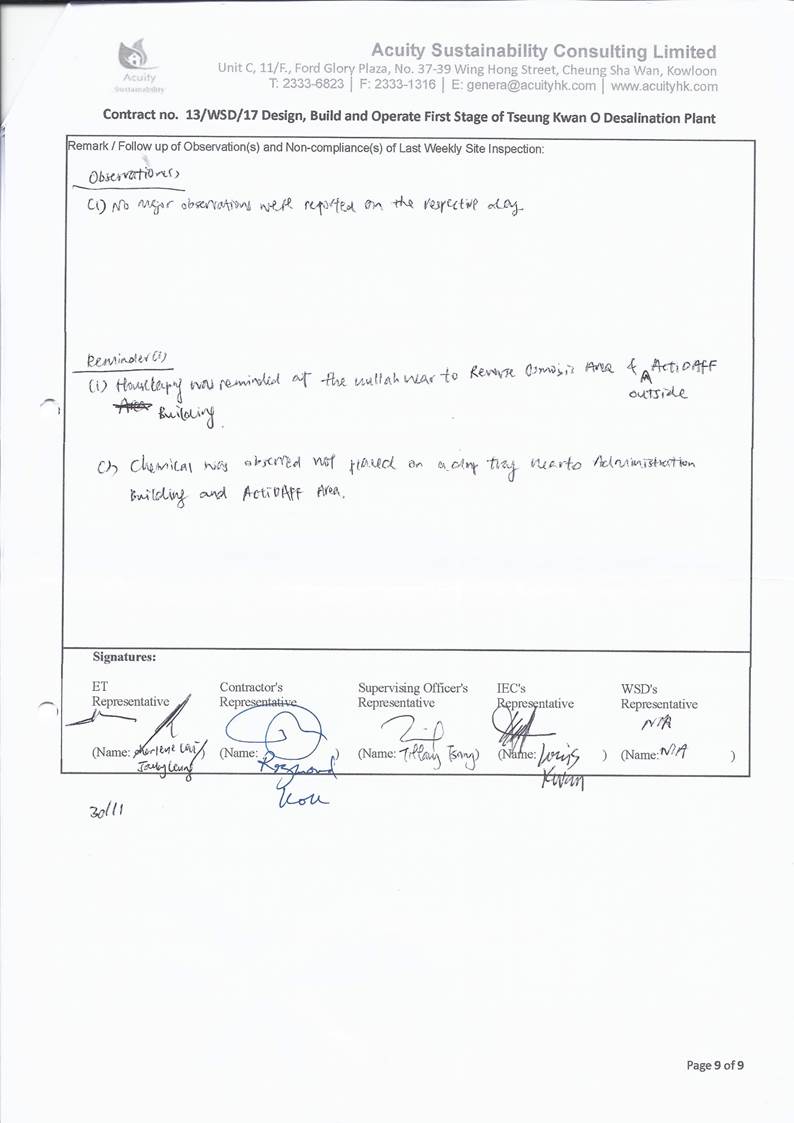 Acuity Sustainability Consulting Limited
Unit C, 11/F., Ford Glory Plaza, No. 37-39 Wing Hong Street, Cheung Sha Wan, Kowloon
T: 2333-6823 | F: 2333-1316 | E: genera@acuityhk.com | www.acuityhk.com
Acuity
Sustainability
Contract no. 13/WSD/17 Design, Build and Operate First Stage of Tseung Kwan O Desalination Plant
Remark / Follow up of Observation(s) and Non-compliance(s) of Last Weekly Site Inspection:
Observation(s)
(1) No major observations were reported on the respective day.
Reminder(s)
(1) Housekeeping was reminded at the nullah near to Reverse Osmosis Area & outside ActiDAFF
Building.
(2) Chemical was observed not placed on a drip tray near to Administration
Building and ActiDAFF Area.
Signatures:
ET Representative
Contractor's Representative
Supervising Officer's Representative
IEC's Representative
WSD's Representative
N/A
(Name: Lui / Leung)
(Name: Raymond Kou)
(Name: Tiffany Tsang)
(Name: Louis Kwan)
(Name: N/A)
30/11
Page 9 of 9